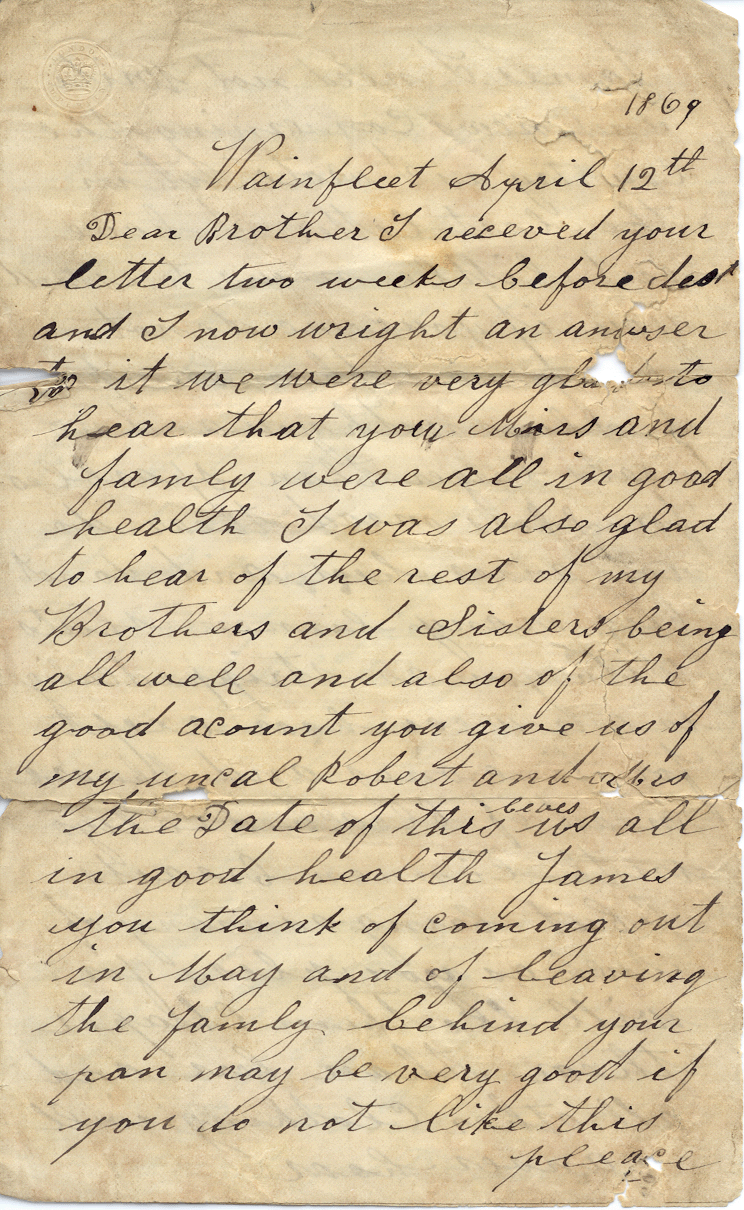 1869
Wainfleet April 12th
Dear Brother I receved your
letter two weeks before
and I now wright an anwser
to it we were very glad to
hear that you Mirs and
family were all in good
health I was also glad
to hear of the rest of my
Brothers and Sisters being
all well and also of the
good acount you give us of
my uncal Robert and Mrs
the Date of this leves us all
in good health James
you think of coming out
in May and of leaving
the famly behind your
pan may be very good if
you do not like this
pleace